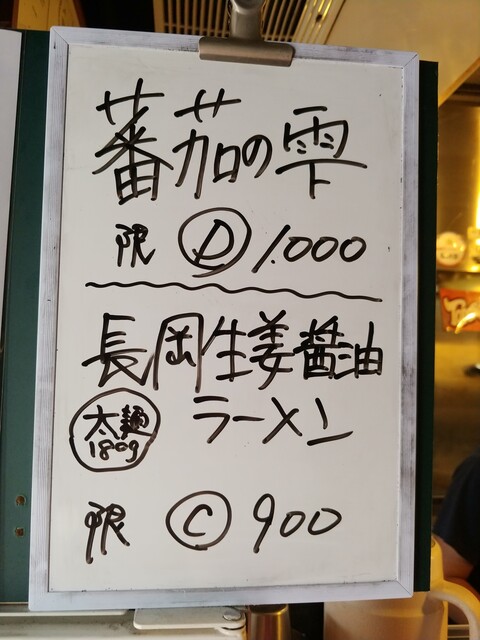 蕃茄の雫
限 D 1.000
長岡生姜醤油
太麺 180g ラーメン
限 C 900